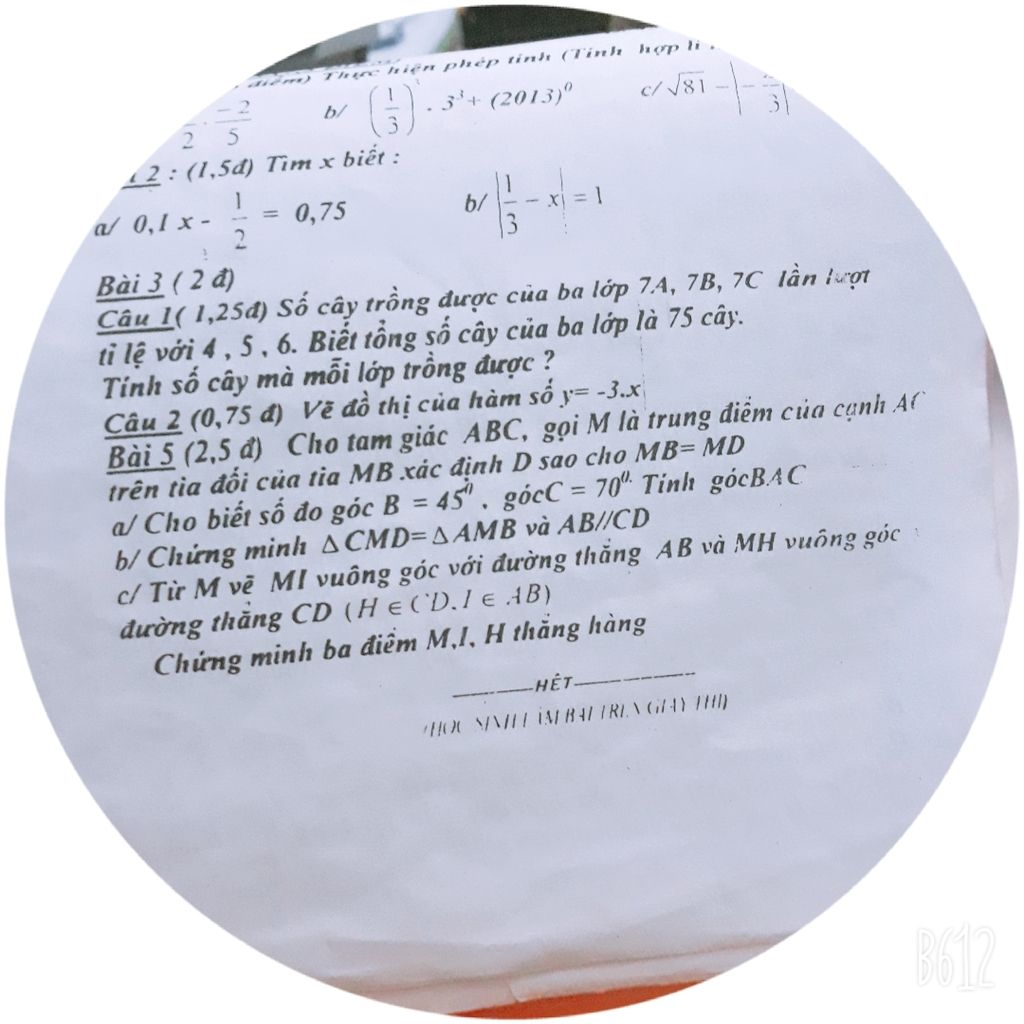 điểm) Thực hiện phép tính (Tính hợp lí
2 . -2/5 b/ (1/3) . 3³ + (2013)⁰ c/ √81 - |- /3|
2 : (1,5đ) Tìm x biết :
a/ 0,1 x - 1/2 = 0,75 b/ |1/3 - x| = 1
Bài 3 ( 2 đ)
Câu 1( 1,25đ) Số cây trồng được của ba lớp 7A, 7B, 7C lần lượt
tỉ lệ với 4 , 5 , 6. Biết tổng số cây của ba lớp là 75 cây.
Tính số cây mà mỗi lớp trồng được ?
Câu 2 (0,75 đ) Vẽ đồ thị của hàm số y= -3.x
Bài 5 (2,5 đ) Cho tam giác ABC, gọi M là trung điểm của cạnh AC
trên tia đối của tia MB xác định D sao cho MB= MD
a/ Cho biết số đo góc B = 45⁰ , gócC = 70⁰. Tính gócBAC
b/ Chứng minh Δ CMD= Δ AMB và AB//CD
c/ Từ M vẽ MI vuông góc với đường thẳng AB và MH vuông góc
đường thẳng CD (H ∈ CD, I ∈ AB)
Chứng minh ba điểm M,I, H thẳng hàng
HẾT
(HỌC SINH LÀM BÀI TRÊN GIẤY THI)
B612